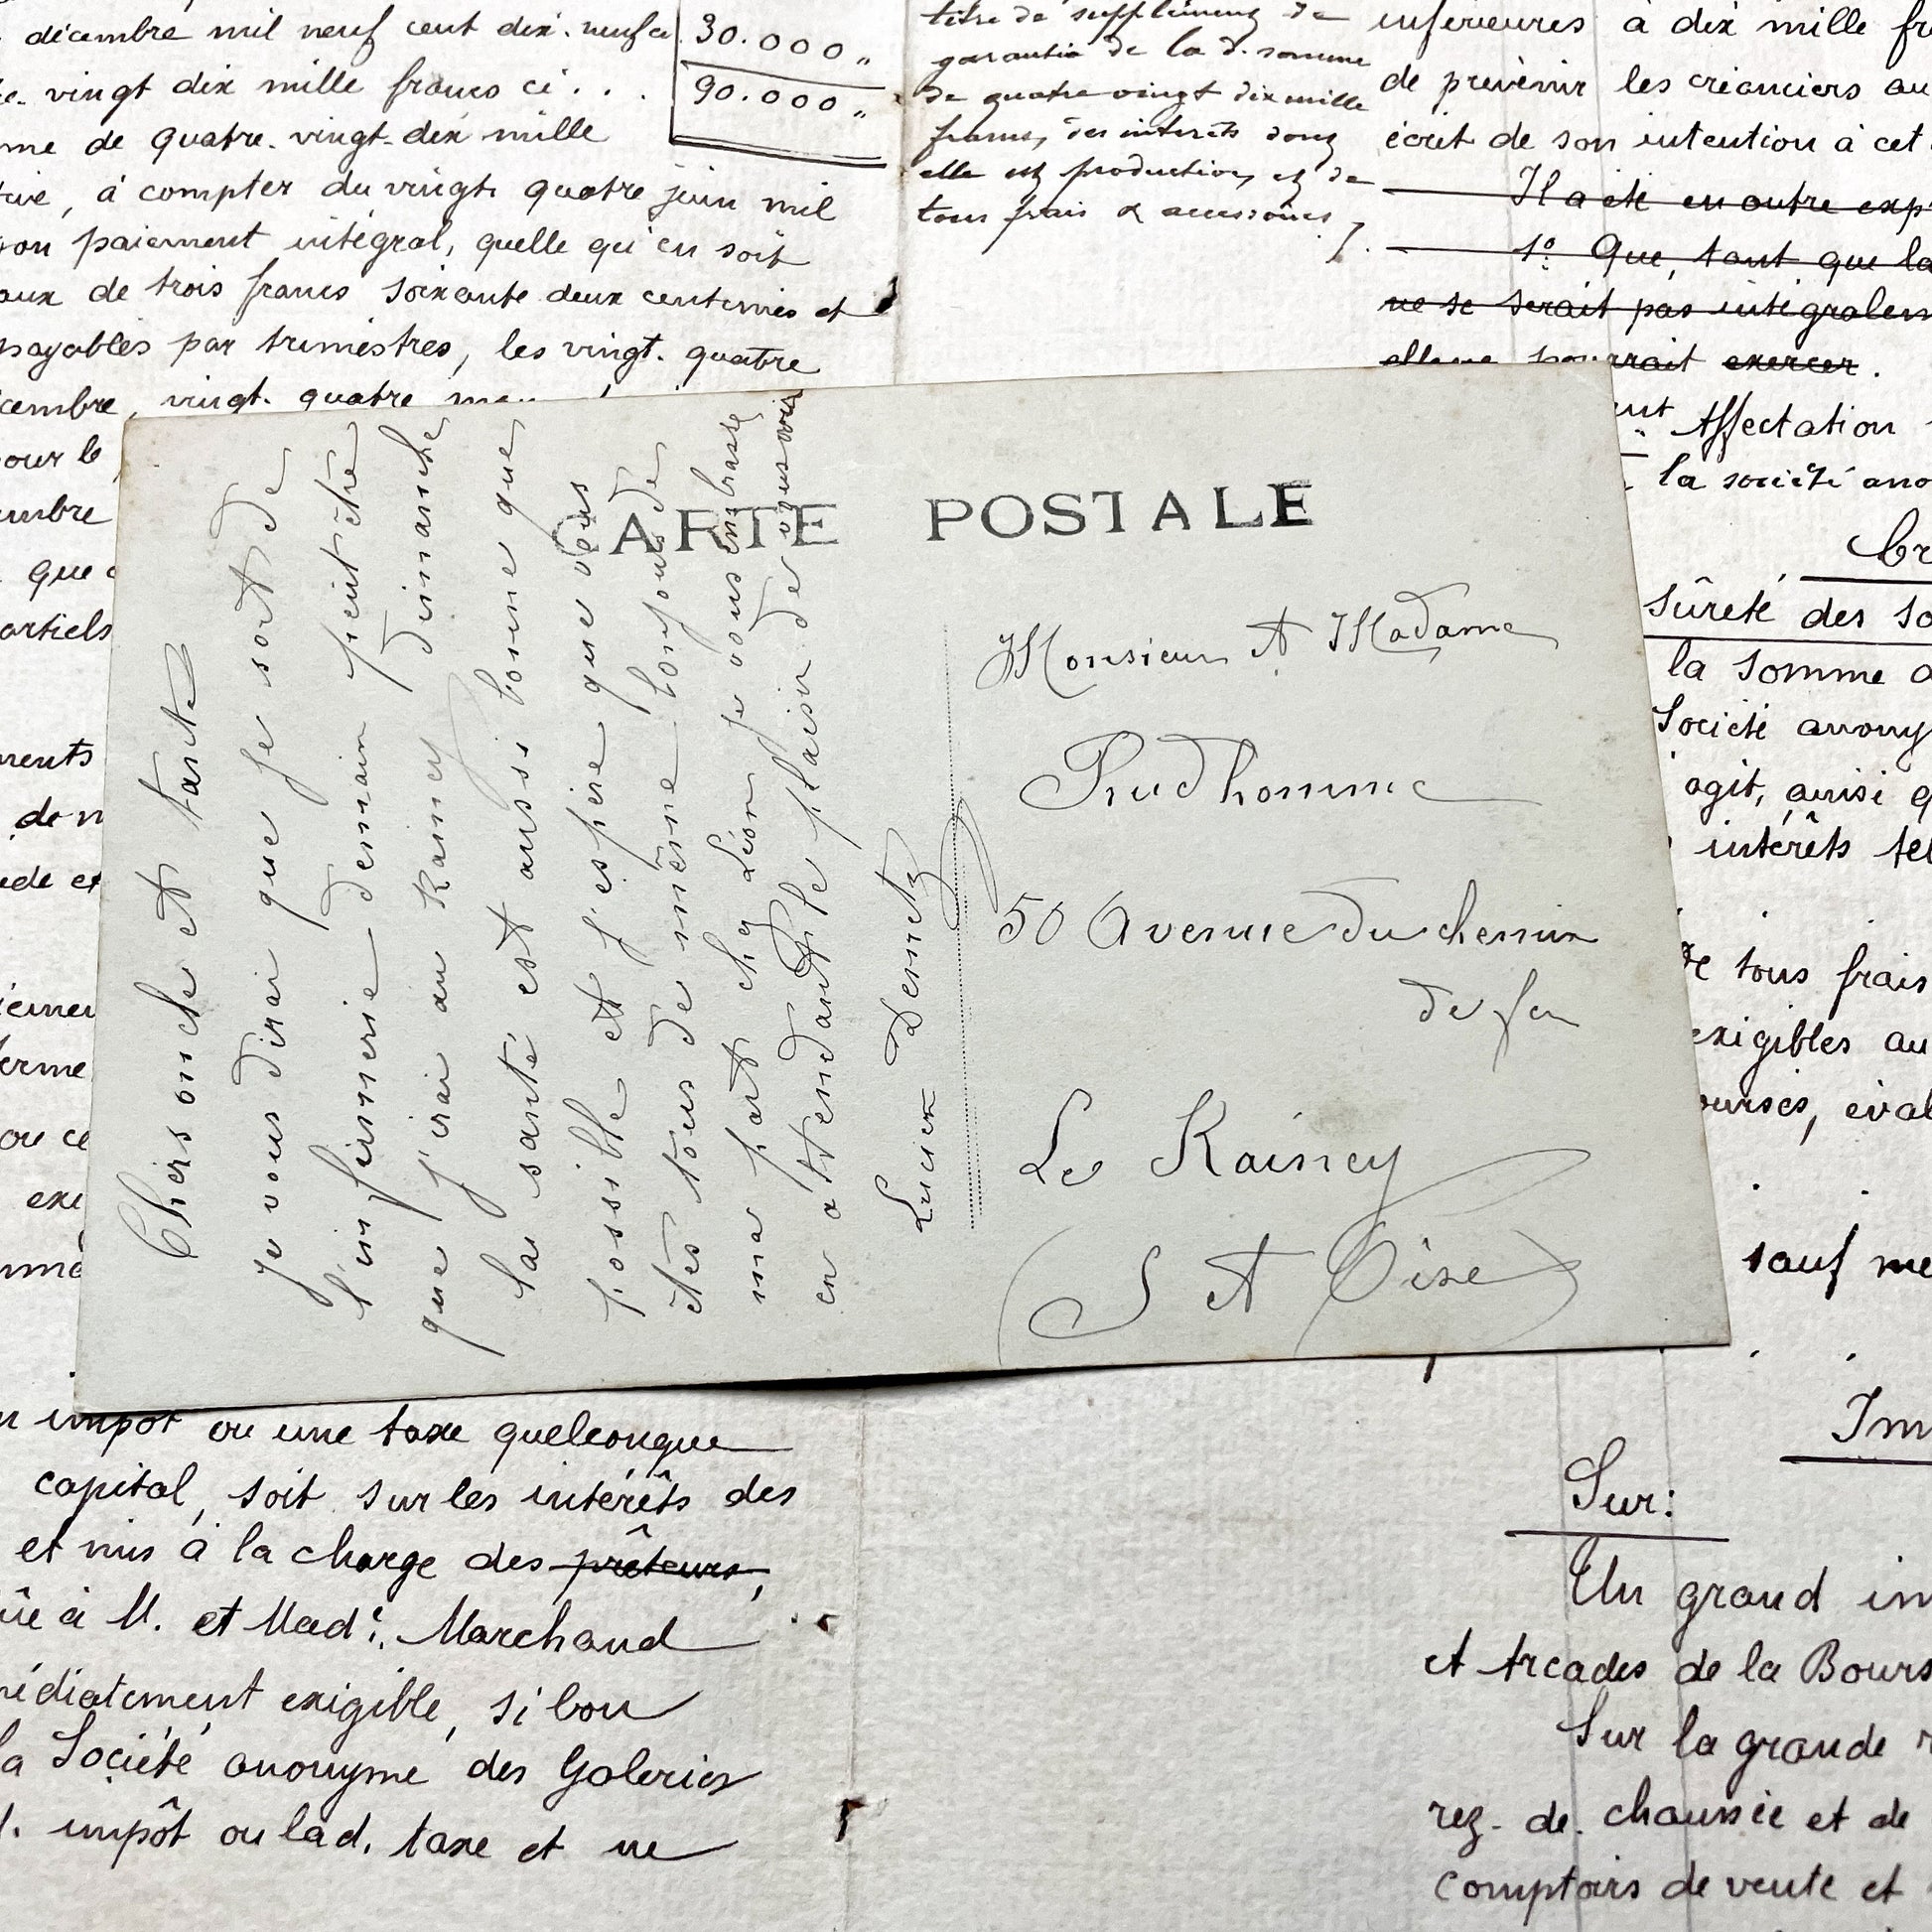 décembre mil neuf cent dix-neuf ci
30.000 „
vingt dix mille francs ci . . .
90.000 „
me de quatre-vingt-dix mille
, à compter du vingt-quatre juin mil
son paiement intégral, quelle qu'en soit
aux de trois francs soixante deux centimes et
payables par trimestres, les vingt-quatre
cembre, vingt-quatre
pour le
embre
que
artiels
ments
de
et
exi
titre de supplément de
garantie de la d. somme
de quatre vingt dix mille
francs, des intérêts dont
elle est productive, et de
tous frais & accessoires
inférieures à dix mille
de prévenir les créanciers au
écrit de son intention à cet
Il a été en outre exp
1º: Que, tant que la
ne se serait pas intégralem
pourrait exercer.
Affectation
la société ano
sûreté des so
la somme
Société anony
agit, ainsi q
intérêts tel
de tous frais
exigibles au
ourses, éval
sauf me
CARTE POSTALE
Chers oncle et tante
Je vous dirai que je sort de
l'infirmerie demain peut être
que j'irai au Raincy Dimanche
la santé est aussi bonne que
possible et j'espère que vous
êtes tous de même bonjour de
ma part chez Léon je vous embrasse
en attendant le plaisir de vous voir
Lucien Demetz
Monsieur et Madame
Prudhomme
50 Avenue du chemin
de fer
Le Raincy
(S et Oise)
impôt ou une taxe quelconque
capital, soit sur les intérêts des
et mis à la charge des prêteurs,
à M. et Mad.e Marchand
médiatement exigible, si bon
la Société anonyme des Galeries
d. impôt ou lad. taxe et ne
Im
Sur:
Un grand im
et Arcades de la Bours
Sur la grande
rez-de-chaussée et de
comptoirs de vente et